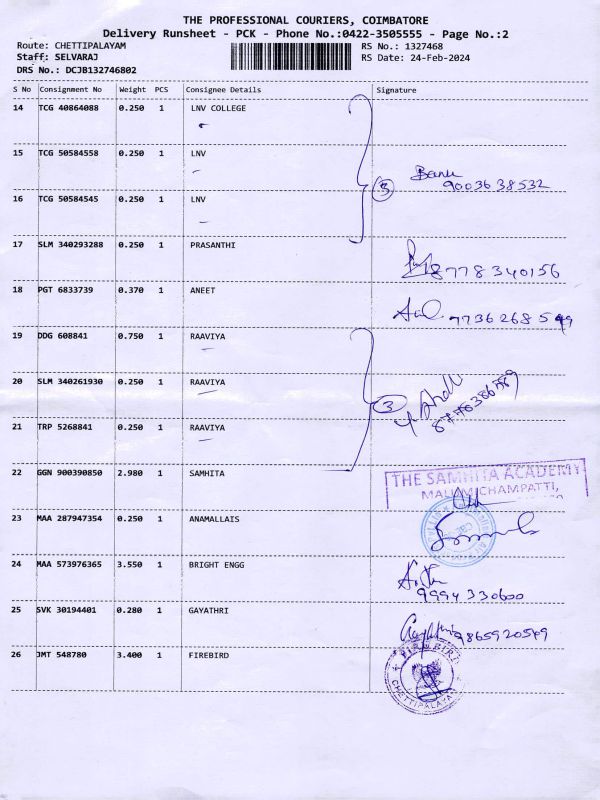 THE PROFESSIONAL COURIERS, COIMBATORE
Delivery Runsheet - PCK - Phone No.:0422-3505555 - Page No.:2
Route: CHETTIPALAYAM
RS No.: 1327468
Staff: SELVARAJ
RS Date: 24-Feb-2024
DRS No.: DCJB132746802
S No Consignment No Weight PCS Consignee Details Signature
14 TCG 40864088 0.250 1 LNV COLLEGE
15 TCG 50584558 0.250 1 LNV
3 Banu
9003638532
16 TCG 50584545 0.250 1 LNV
17 SLM 340293288 0.250 1 PRASANTHI
8778340156
18 PGT 6833739 0.370 1 ANEET
19 DDG 608841 0.750 1 RAAVIYA
20 SLM 340261930 0.250 1 RAAVIYA
3
21 TRP 5268841 0.250 1 RAAVIYA
22 GGN 900390850 2.980 1 SAMHITA
THE SAMHITA ACADEMY
MALUMICHAMPATTI,
23 MAA 287947354 0.250 1 ANAMALLAIS
24 MAA 573976365 3.550 1 BRIGHT ENGG
9994330600
25 SVK 30194401 0.280 1 GAYATHRI
9865920549
26 JMT 548780 3.400 1 FIREBIRD
CHETTIPALAYAM